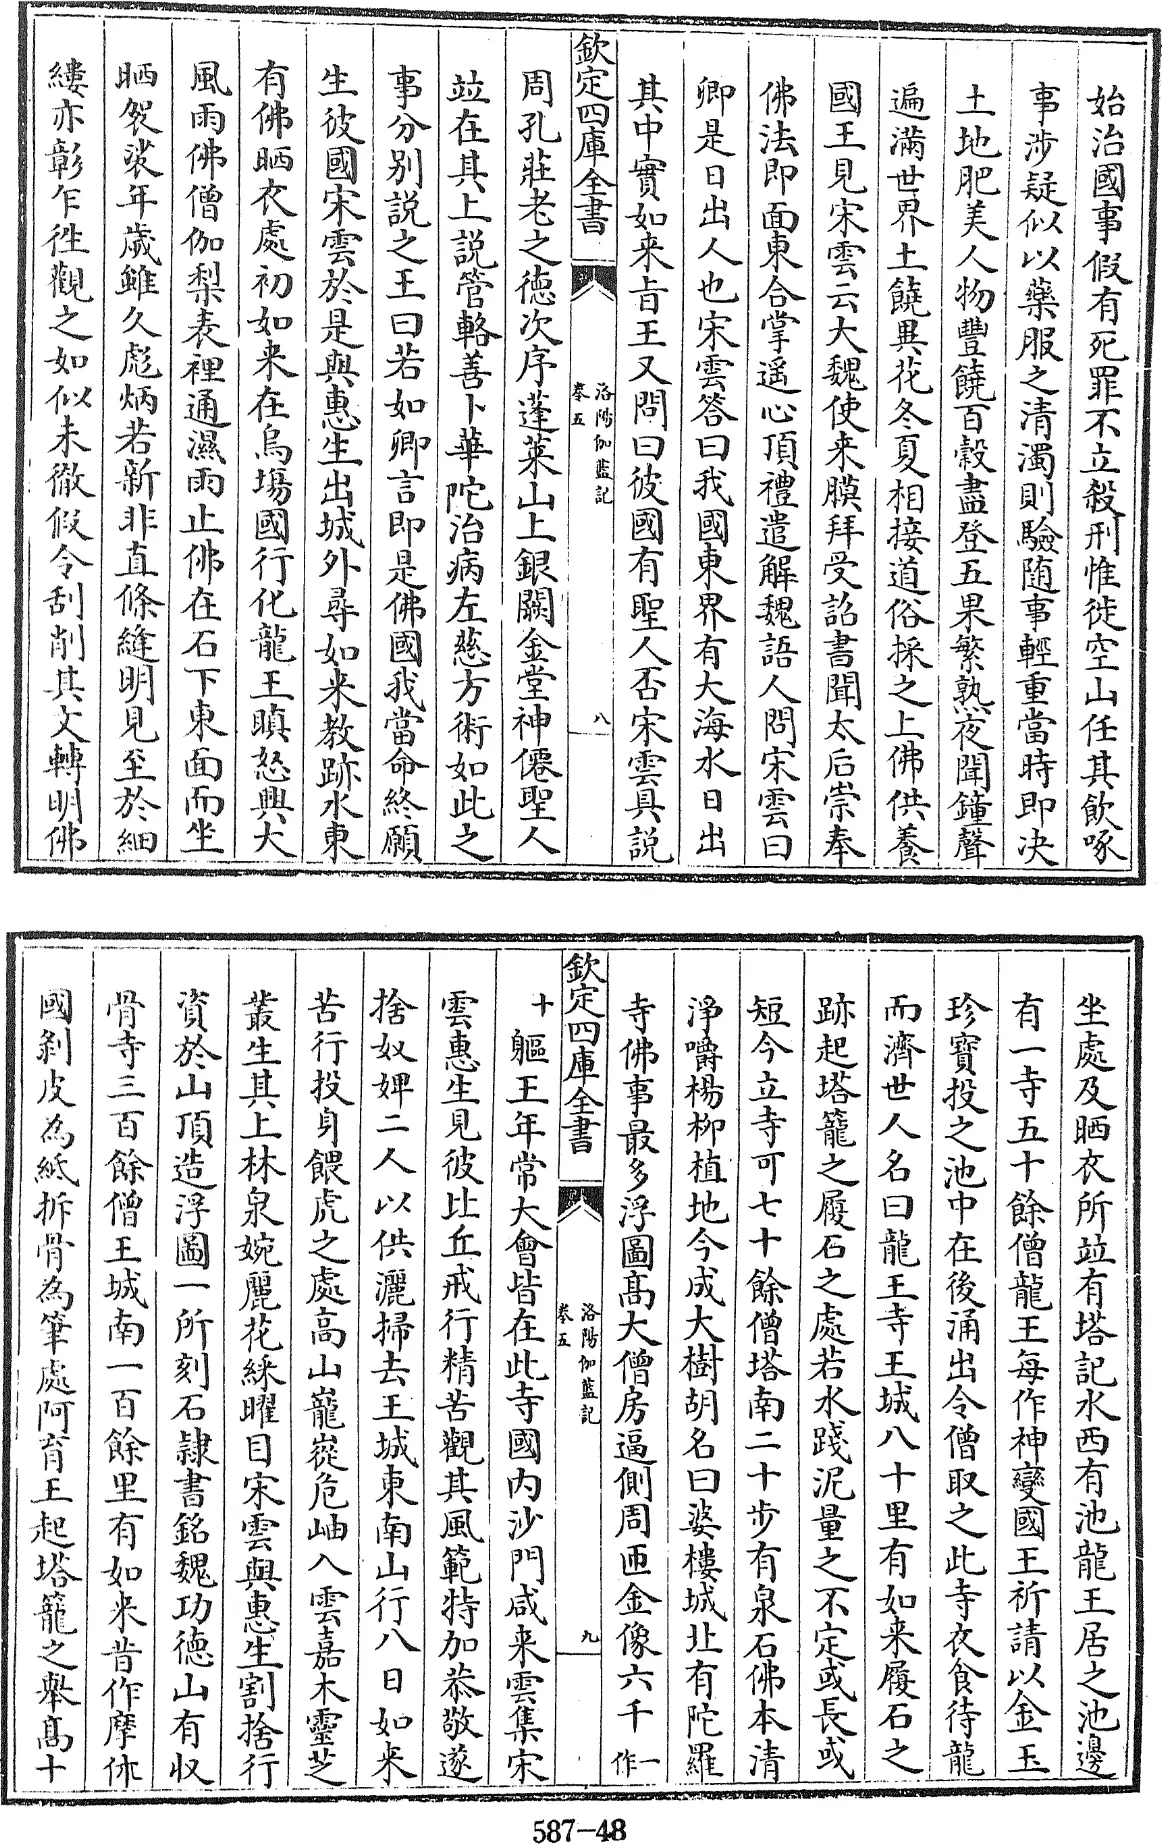 始治國事假有死罪不立殺刑惟徙空山任其飲啄
事涉疑似以藥服之清濁則驗随事輕重當時即決
土地肥美人物豐饒百穀盡登五果繁熟夜聞鐘聲
遍滿世界土饒異花冬夏相接道俗採之上佛供養
國王見宋雲云大魏使来膜拜受詔書聞太后崇奉
佛法即面東合掌遥心頂禮遣解魏語人問宋雲曰
卿是日出人也宋雲答曰我國東界有大海水日出
其中實如来㫖王又問曰彼國有聖人否宋雲具說
欽定四庫全書
洛陽伽藍記
卷五
八
周孔莊老之徳次序蓬萊山上銀闕金堂神僊聖人
竝在其上説管輅善卜華陀治病左慈方術如此之
事分别説之王曰若如卿言即是佛國我當命終願
生彼國宋雲於是與惠生出城外尋如来教跡水東
有佛晒衣處初如来在烏塲國行化龍王瞋怒興大
風雨佛僧伽梨表裡通濕雨止佛在石下東面而坐
晒袈裟年歲雖久彪炳若新非直條縫明見至於細
縷亦彰乍徃觀之如似未徹假令刮削其文轉明佛
坐處及晒衣所竝有塔記水西有池龍王居之池邊
有一寺五十餘僧龍王每作神變國王祈請以金玉
珍寶投之池中在後涌出令僧取之此寺衣食待龍
而濟世人名曰龍王寺王城八十里有如来履石之
跡起塔籠之履石之處若水踐泥量之不定或長或
短今立寺可七十餘僧塔南二十步有泉石佛本清
淨嚼楊柳植地今成大樹胡名曰婆樓城北有陀羅
寺佛事最多浮圖髙大僧房逼側周匝金像六千一作
欽定四庫全書
洛陽伽藍記
卷五
九
十軀王年常大會皆在此寺國内沙門咸来雲集宋
雲惠生見彼比丘戒行精苦觀其風範特加恭敬遂
捨奴婢二人以供灑掃去王城東南山行八日如来
苦行投身餵虎之處高山巃嵸危岫入雲嘉木靈芝
叢生其上林泉婉麗花綵曜目宋雲與惠生割捨行
資於山頂造浮圖一所刻石隷書銘魏功徳山有収
骨寺三百餘僧王城南一百餘里有如来昔作摩休
國剝皮為紙拆骨為筆處阿育王起塔籠之舉髙十
587-48